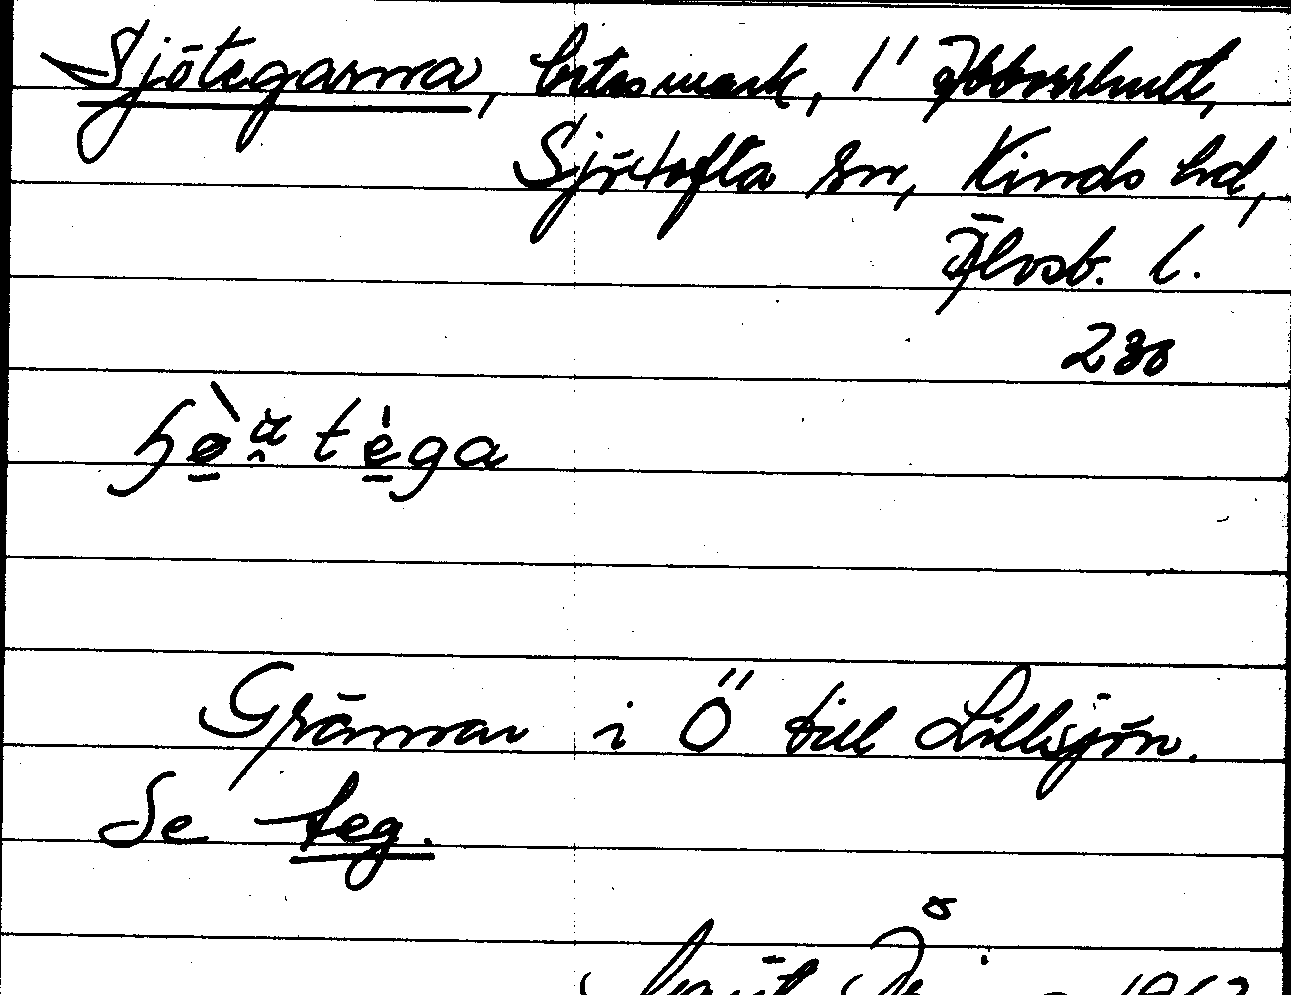 Sjötegarna, betesmark, 1" Abborrhult,
Sjötofta sn, Kinds hd,
Älvsb. l.
230
tega
Gränsar i Ö till Lillsjön.
Se teg.